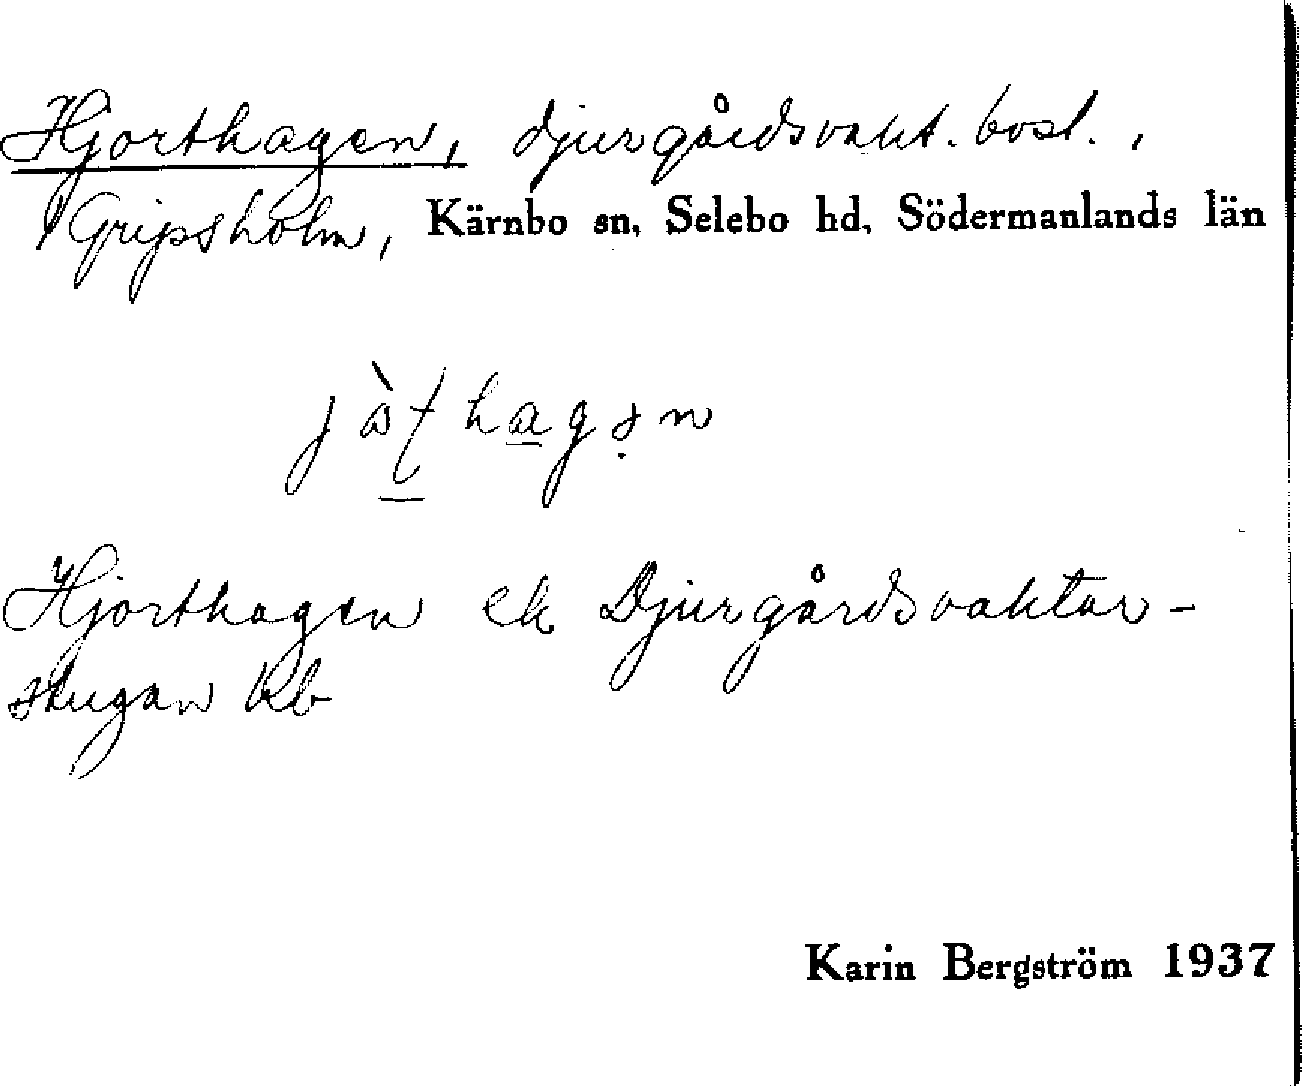 Hjorthagen, djurgårdsvakt. bost.,
Gripsholm, Kärnbo sn, Selebo hd, Södermanlands län
Hjorthagen ek Djurgårdsvaktar-
stugan Kb
Karin Bergström 1937